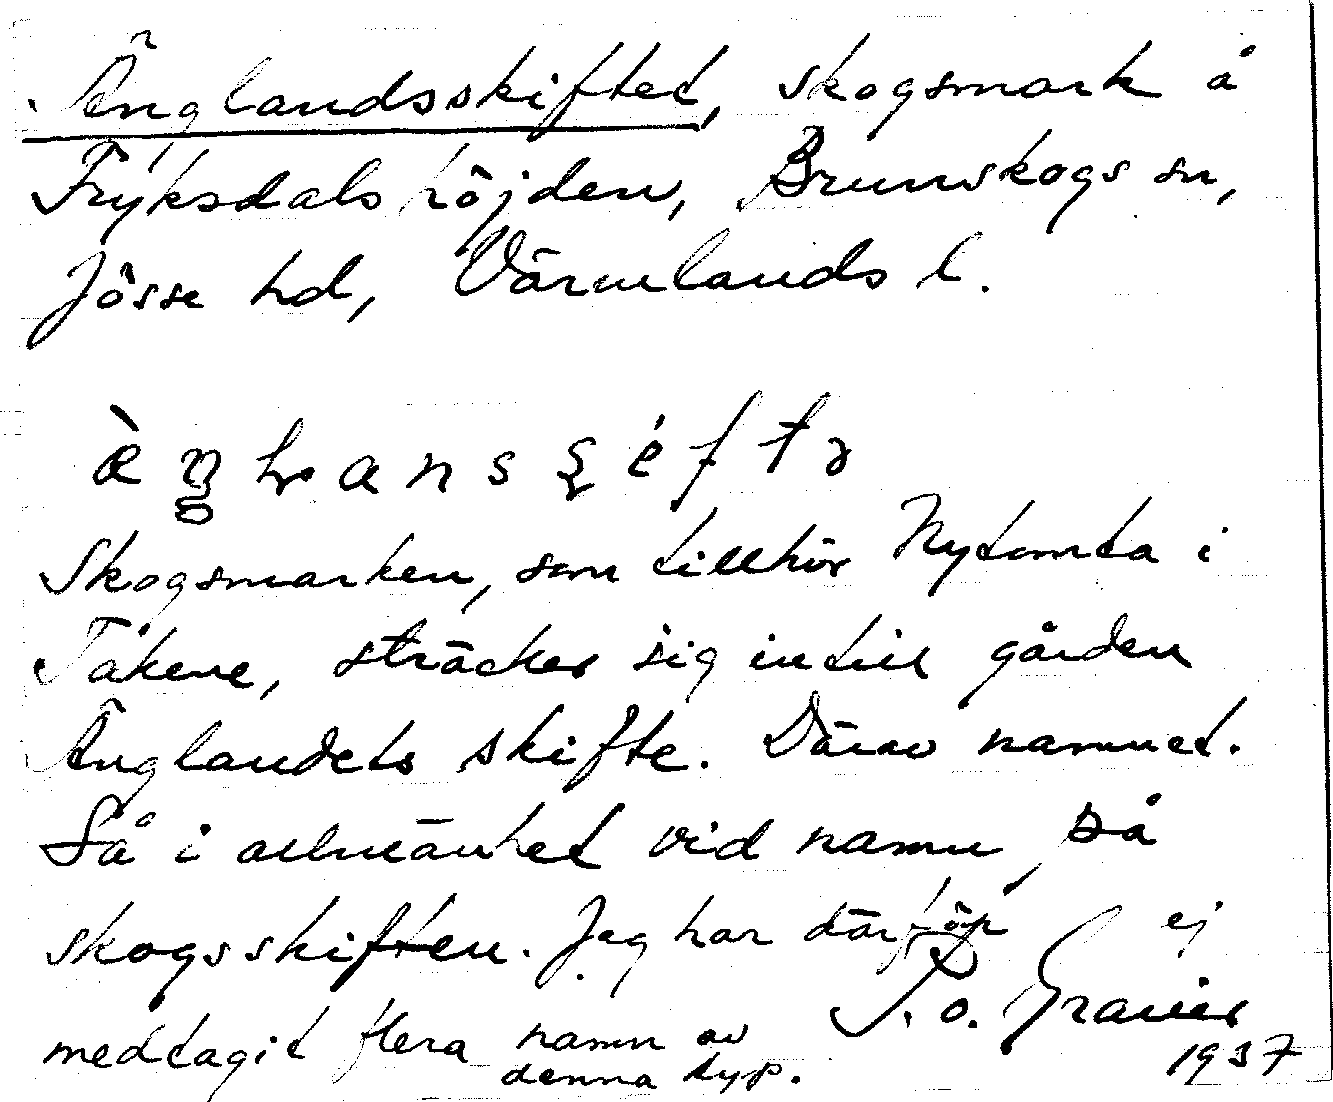 Änglandsskiftet, skogsmark å
Fryksdalshöjden, Brunskogs sn,
Jösse hd, Värmlands l.
Skogsmarken, som tillhör Nytomta i
Tåkene, sträcker sig intill gården
Änglandets skifte. Därav namnet.
Så i allmänhet vid namn på
skogsskiften. Jag har därför ej
medtagit flera namn av
denna typ.
1937